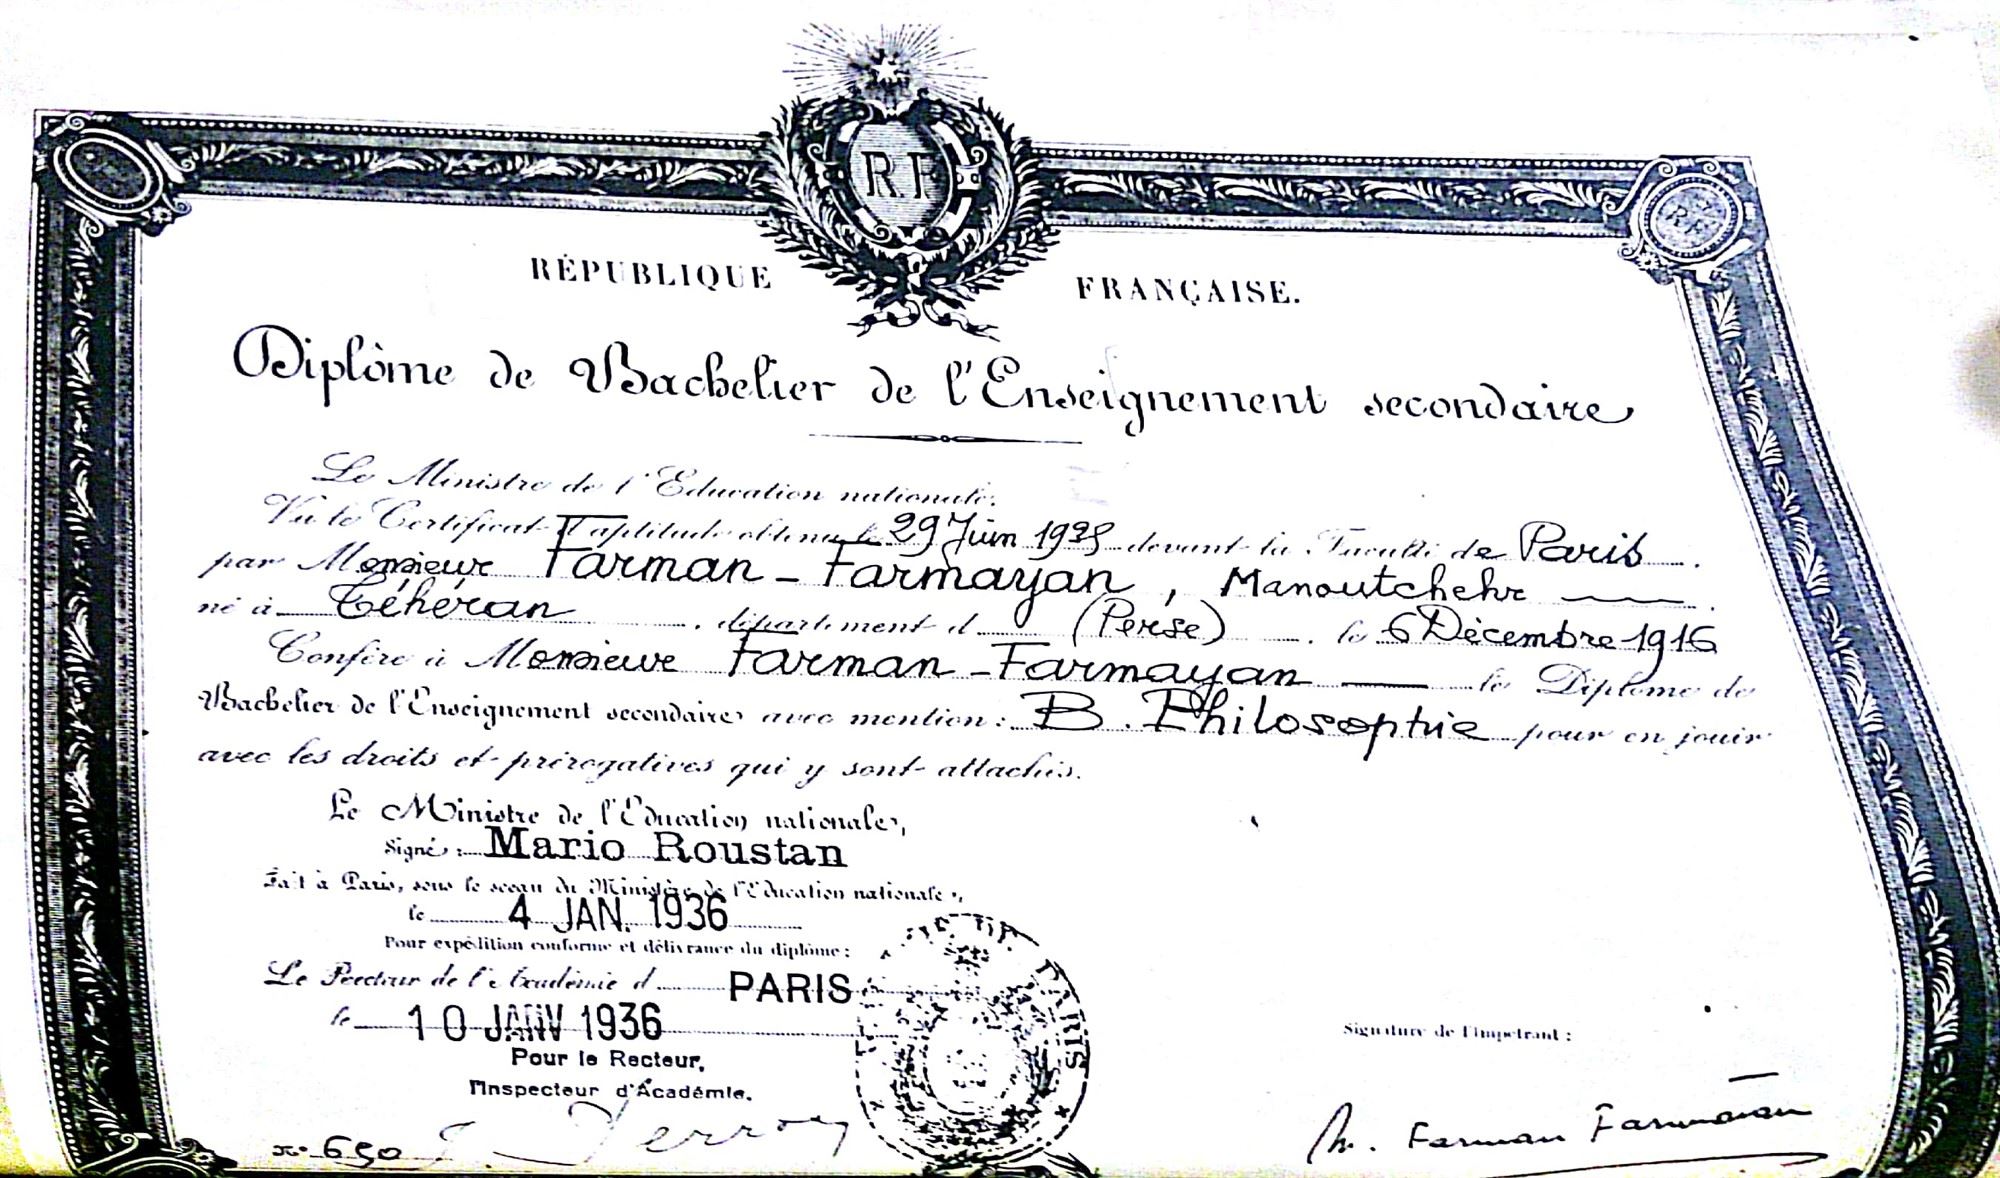 RF
RF
RÉPUBLIQUE FRANÇAISE.
Diplôme de Bachelier de l'Enseignement secondaire
Le Ministre de l'Education nationale,
Vu le Certificat d'aptitude obtenu le 29 Juin 1935 devant la Faculté de Paris.
par Monsieur Farman-Farmayan, Manoutchehr
né à Téhéran, département d (Perse). le 6 Décembre 1916
Confère à Monsieur Farman-Farmayan le Diplôme de
Bachelier de l'Enseignement secondaire avec mention: B. Philosophie pour en jouir
avec les droits et prérogatives qui y sont attachés.
Le Ministre de l'Education nationale,
Signé: Mario Roustan
Fait à Paris, sous le sceau du Ministère de l'Education nationale,
le 4 JAN. 1936
Pour expédition conforme et délivrance du diplôme:
Le Recteur de l'Académie d PARIS
le 10 JANV 1936
Pour le Recteur,
l'Inspecteur d'Académie.
PARIS
Signature de l'impétrant:
M. Farman Farmaian
N° 650